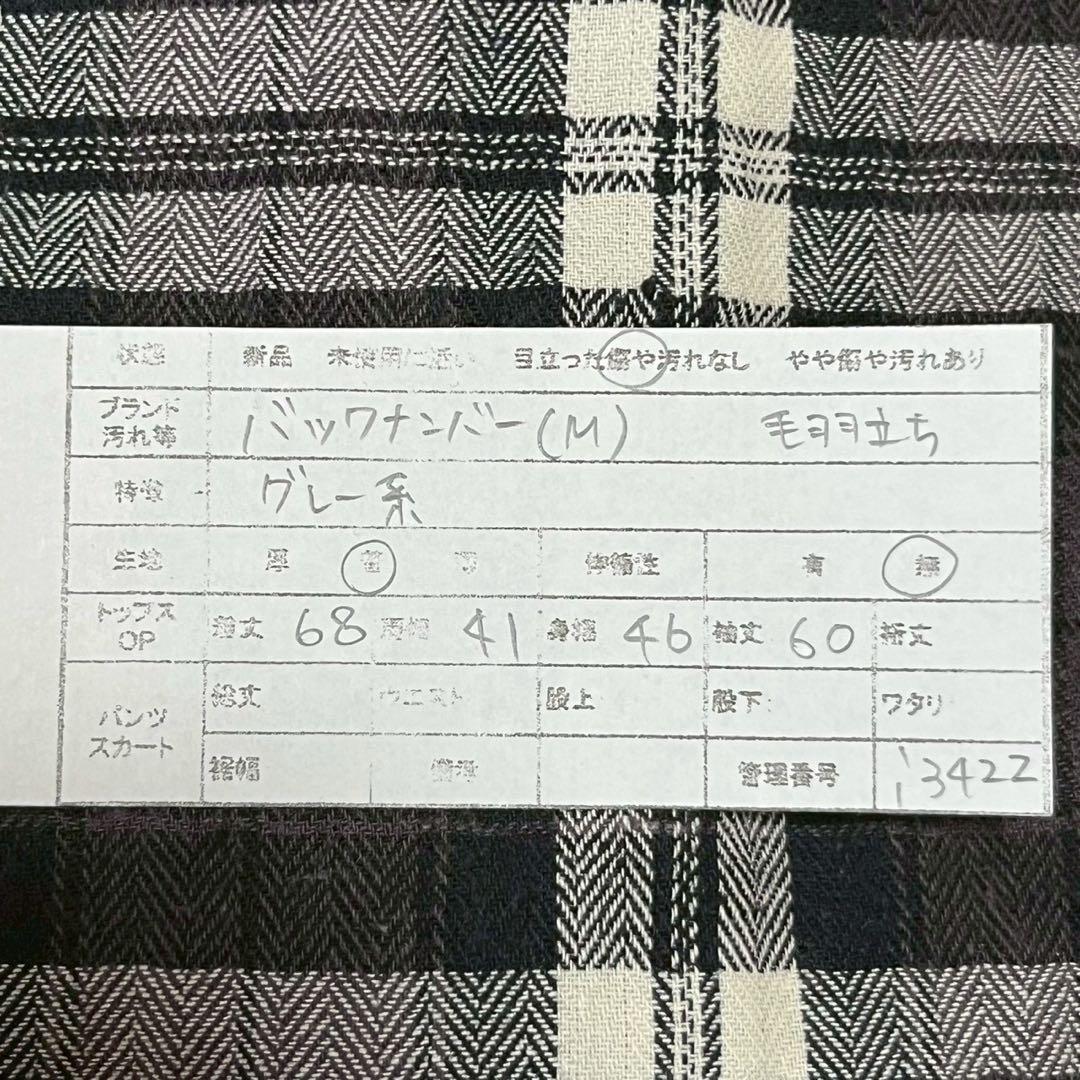 状態 新品 未使用に近い 目立った傷や汚れなし やや傷や汚れあり
ブランド 汚れ等 バックナンバー(M) 毛羽立ち
特徴 グレー系
生地 厚 普 薄 伸縮性 有 無
トップス OP 総丈 68 肩幅 41 身幅 46 袖丈 60 裄丈
パンツ スカート 総丈 ウエスト 股上 股下 ワタリ
裾幅 備考 管理番号 i3422